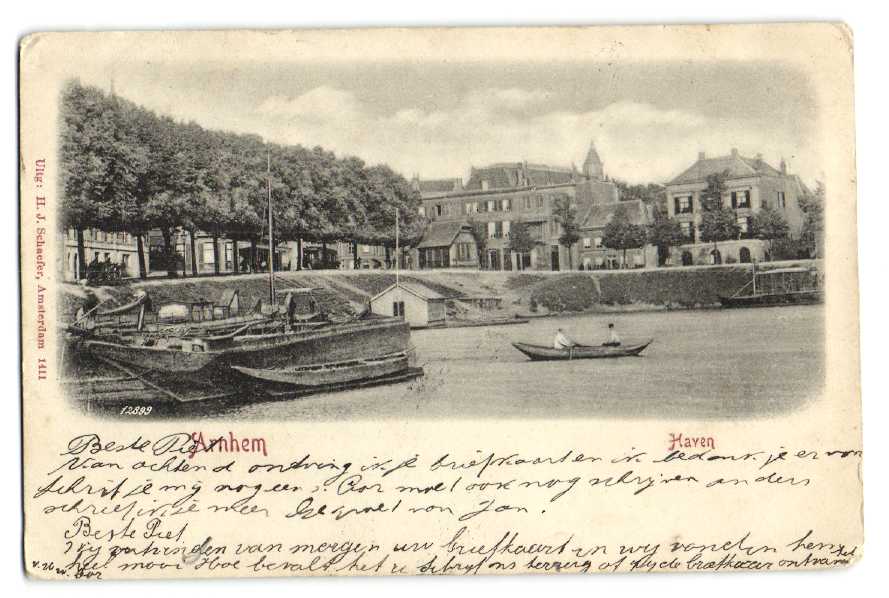 Uitg: H. J. Schaefer, Amsterdam 1411
12899
Arnhem
Haven
Beste Piet
Van ochtend ontving ik je briefkaarten ik bedank je er voor
Schrijf je mij nog eens? Cor moet ook nog schrijven anders
schreef ik je meer gegroet van Jan.
Beste Piet
Wij ontvingen van morgen uw briefkaart en wij vonden hem
heel mooi Hoe bevalt het u schrijf ons terug of gij de briefkaar ontvang